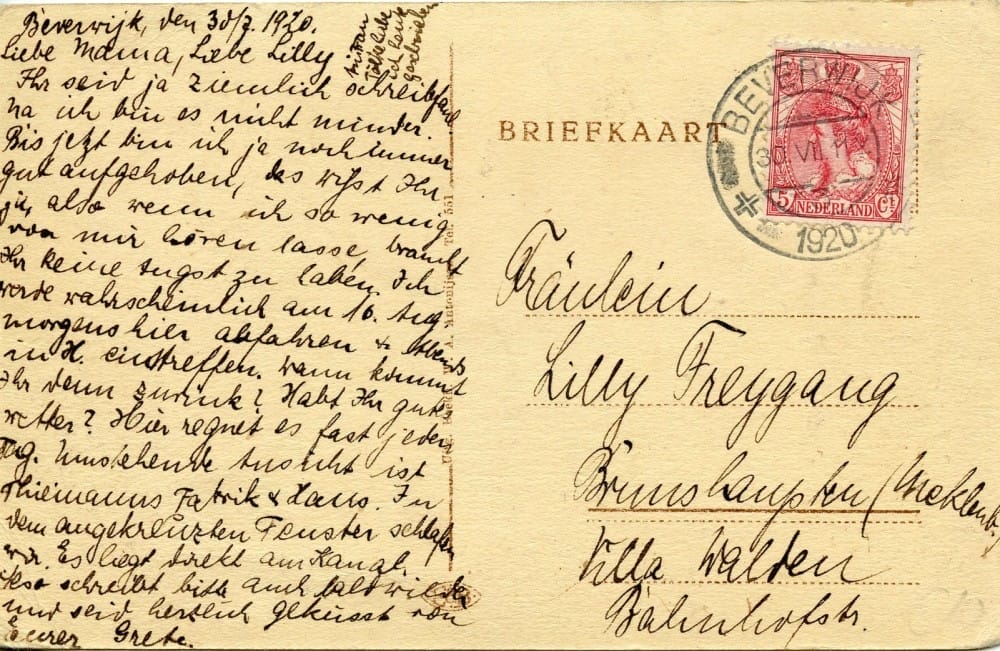 Beverwijk, den 30/7. 1920.
Liebe Mama, Liebe Lilly
Ihr seid ja ziemlich schreibfaul
na ich bin es nicht minder.
Bis jetzt bin ich ja noch immer
gut aufgehoben, das wisst Ihr
ja, also wenn ich so wenig
von mir hören lasse, braucht
Ihr keine Angst zu haben. Ich
werde wahrscheinlich am 16. Aug
morgens hier abfahren & Abends
in H. eintreffen. wann kommt
Ihr denn zurück? Habt Ihr gutes
wetter? Hier regnet es fast jeden
Tag. Umstehende Ansicht ist
Thiemanns Fabrik & Haus. In
dem angekreuzten Fenster schlafen
wir. Es liegt direkt am Kanal.
Also schreibt bitte auch bald wieder
und seid herzlich geküsst von
Eurer Grete.
ich heute
geschrieben
BRIEFKAART
BEVERWIJK
30 VII
1920
5 NEDERLAND Ct
Fräulein
Lilly Freygang
Brunshaupten (Mecklenb.)
Villa Walden
Bahnhofstr.